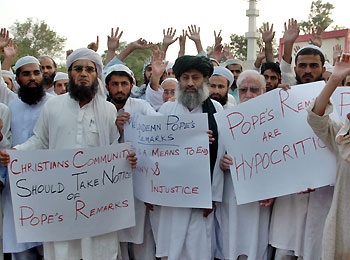 Christians Community
Should Take Notice
of
Pope's Remarks
Condemn Pope's
Remarks
a Means To End
&
Injustice
Pope's Remarks
are
Hypocritic